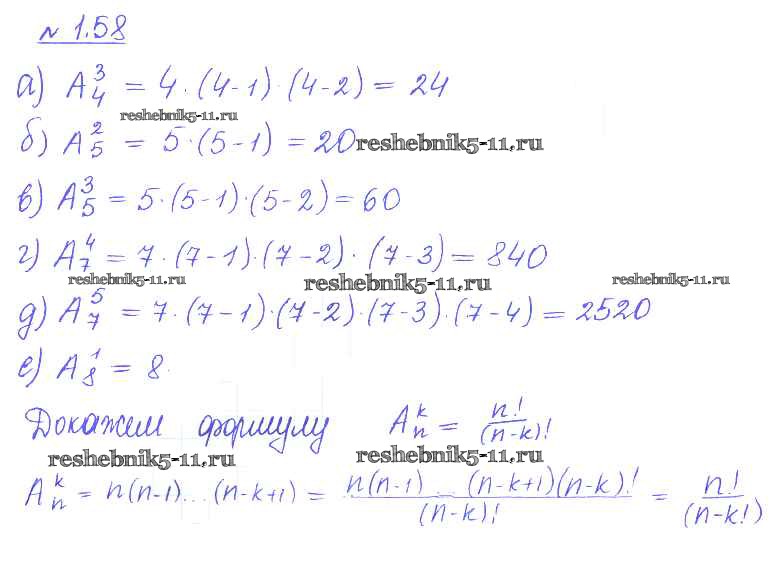 № 1.58
а) A₄³ = 4·(4-1)·(4-2) = 24
reshebnik5-11.ru
б) A₅² = 5·(5-1) = 20 reshebnik5-11.ru
в) A₅³ = 5·(5-1)·(5-2) = 60
г) A₇⁴ = 7·(7-1)·(7-2)·(7-3) = 840
reshebnik5-11.ru reshebnik5-11.ru reshebnik5-11.ru
д) A₇⁵ = 7·(7-1)·(7-2)·(7-3)·(7-4) = 2520
е) A₈¹ = 8.
Докажем формулу Aₙᵏ = n!/(n-k)!
reshebnik5-11.ru reshebnik5-11.ru
Aₙᵏ = n(n-1)...(n-k+1) = n(n-1)...(n-k+1)(n-k)!/(n-k)! = n!/(n-k!)